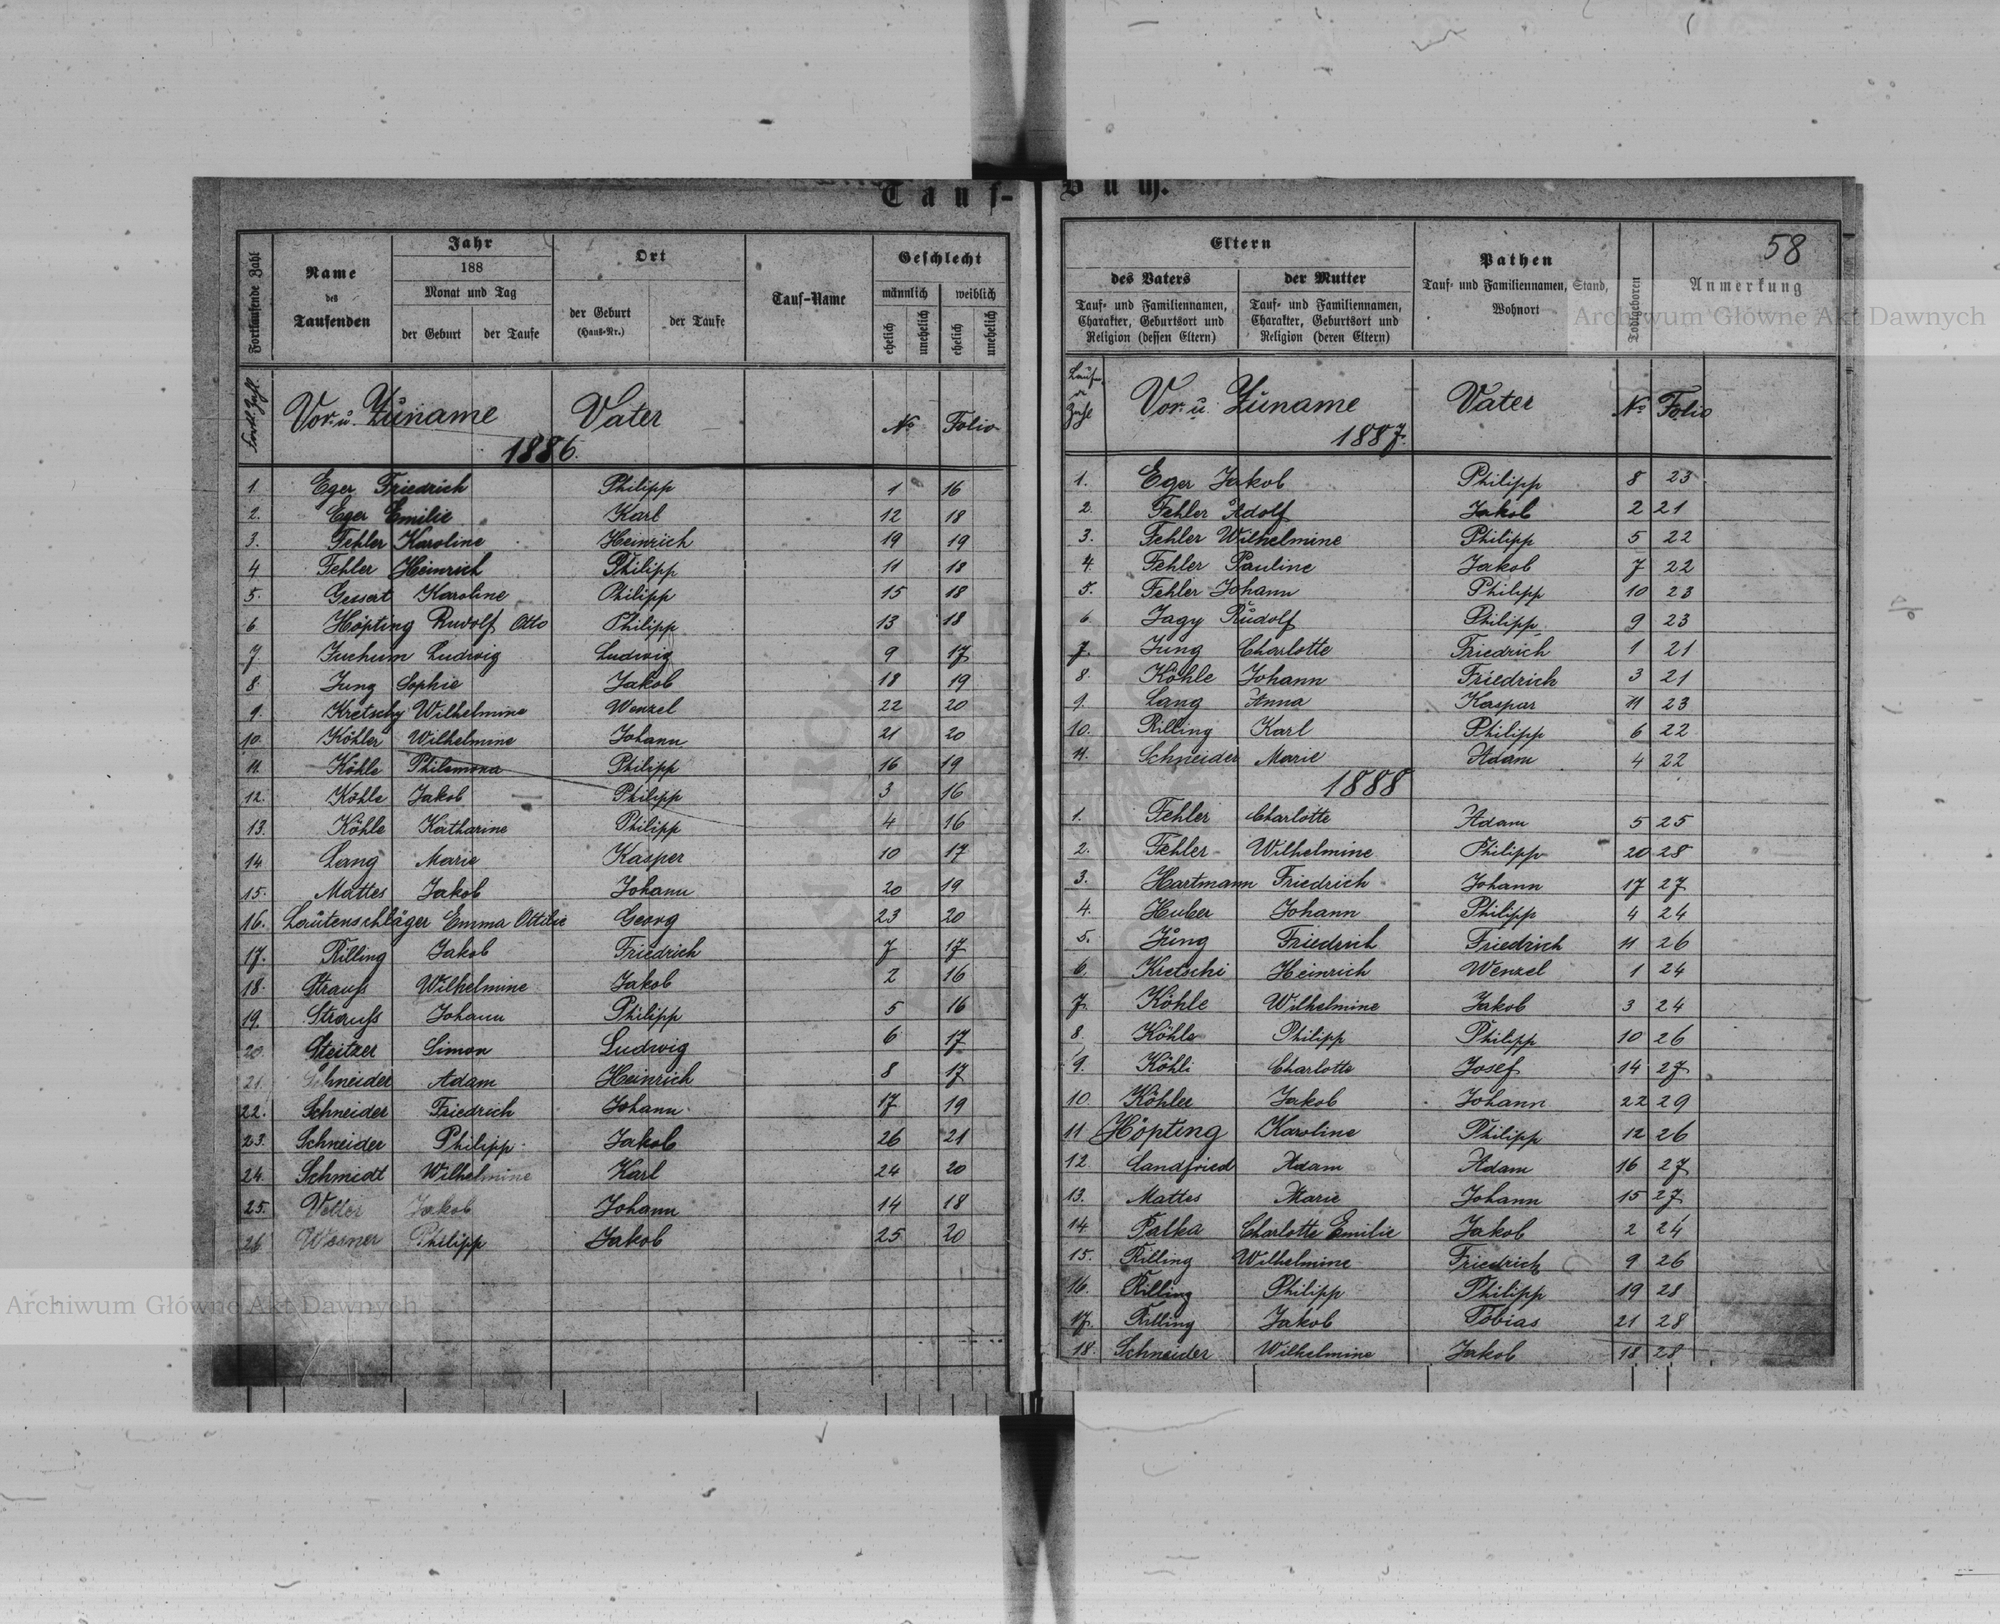 Tauf-Buch.
58
Fortlaufende Zahl
Name des Taufenden
Jahr
188
Monat und Tag
der Geburt
der Taufe
Ort
der Geburt
(Haus-Nr.)
der Taufe
Tauf-Name
Geschlecht
männlich
weiblich
ehelich
unehelich
ehelich
unehelich
Fortl. Zahl
Vor- u. Zuname
Vater
No
Folio
1886.
1. Eger Friedrich Philipp 1 16
2. Eger Emilie Karl 12 18
3. Fehler Karoline Heinrich 19 19
4 Fehler Heinrich Philipp 11 18
5. Gessert Karoline Philipp 15 18
6 Höpting Rudolf Otto Philipp 13 18
7 Jucheim Ludwig Ludwig 9 17
8 Jung Sophie Jakob 18 19
9. Kretschy Wilhelmine Wenzel 22 20
10. Köhler Wilhelmine Johann 21 20
11. Köhle Philomona Philipp 16 19
12. Köhle Jakob Philipp 3 16
13. Köhle Katharine Philipp 4 16
14 Lang Marie Kasper 10 17
15. Mattes Jakob Johann 20 19
16. Lautenschläger Emma Ottilie Georg 23 20
17. Rilling Jakob Friedrich 7 17
18. Strauss Wilhelmine Jakob 2 16
19. Strauss Johann Philipp 5 16
20. Steitzer Simon Ludwig 6 17
21. Schneider Adam Heinrich 8 17
22. Schneider Friedrich Johann 17 19
23. Schneider Philipp Jakob 26 21
24. Schmidt Wilhelmine Karl 24 20
25. Vetter Jakob Johann 14 18
26 Wesner Philipp Jakob 25 20
Eltern
des Vaters
Tauf- und Familiennamen, Charakter, Geburtsort und Religion (dessen Eltern)
der Mutter
Tauf- und Familiennamen, Charakter, Geburtsort und Religion (deren Eltern)
Pathen
Tauf- und Familiennamen, Stand, Wohnort
Todtgeboren
Anmerkung
Laufe Zahl
Vor- u. Zuname
Vater
No
Folio
1887.
1. Eger Jakob Philipp 8 23
2. Fehler Adolf Jakob 2 21
3. Fehler Wilhelmine Philipp 5 22
4. Fehler Pauline Jakob 7 22
5. Fehler Johann Philipp 10 23
6. Jagy Rudolf Philipp 9 23
7. Jung Charlotte Friedrich 1 21
8. Köhle Johann Friedrich 3 21
9. Lang Anna Kaspar 11 23
10. Rilling Karl Philipp 6 22
11. Schneider Marie Adam 4 22
1888
1. Fehler Charlotte Adam 5 25
2. Fehler Wilhelmine Philipp 20 28
3. Hartmann Friedrich Johann 17 27
4. Huber Johann Philipp 4 24
5. Jung Friedrich Friedrich 11 26
6. Kretschi Heinrich Wenzel 1 24
7. Köhle Wilhelmine Jakob 3 24
8. Köhle Philipp Philipp 10 26
9. Köhli Charlotte Josef 14 27
10. Köhler Jakob Johann 22 29
11 Höpting Karoline Philipp 12 26
12. Landfried Adam Adam 16 27
13. Mattes Marie Johann 15 27
14 Palka Charlotte Emilie Jakob 2 24
15. Rilling Wilhelmine Friedrich 9 26
16. Rilling Philipp Philipp 19 28
17. Rilling Jakob Tobias 21 28
18. Schneider Wilhelmine Jakob 18 28
Archiwum Główne Akt Dawnych
Archiwum Główne Akt Dawnych